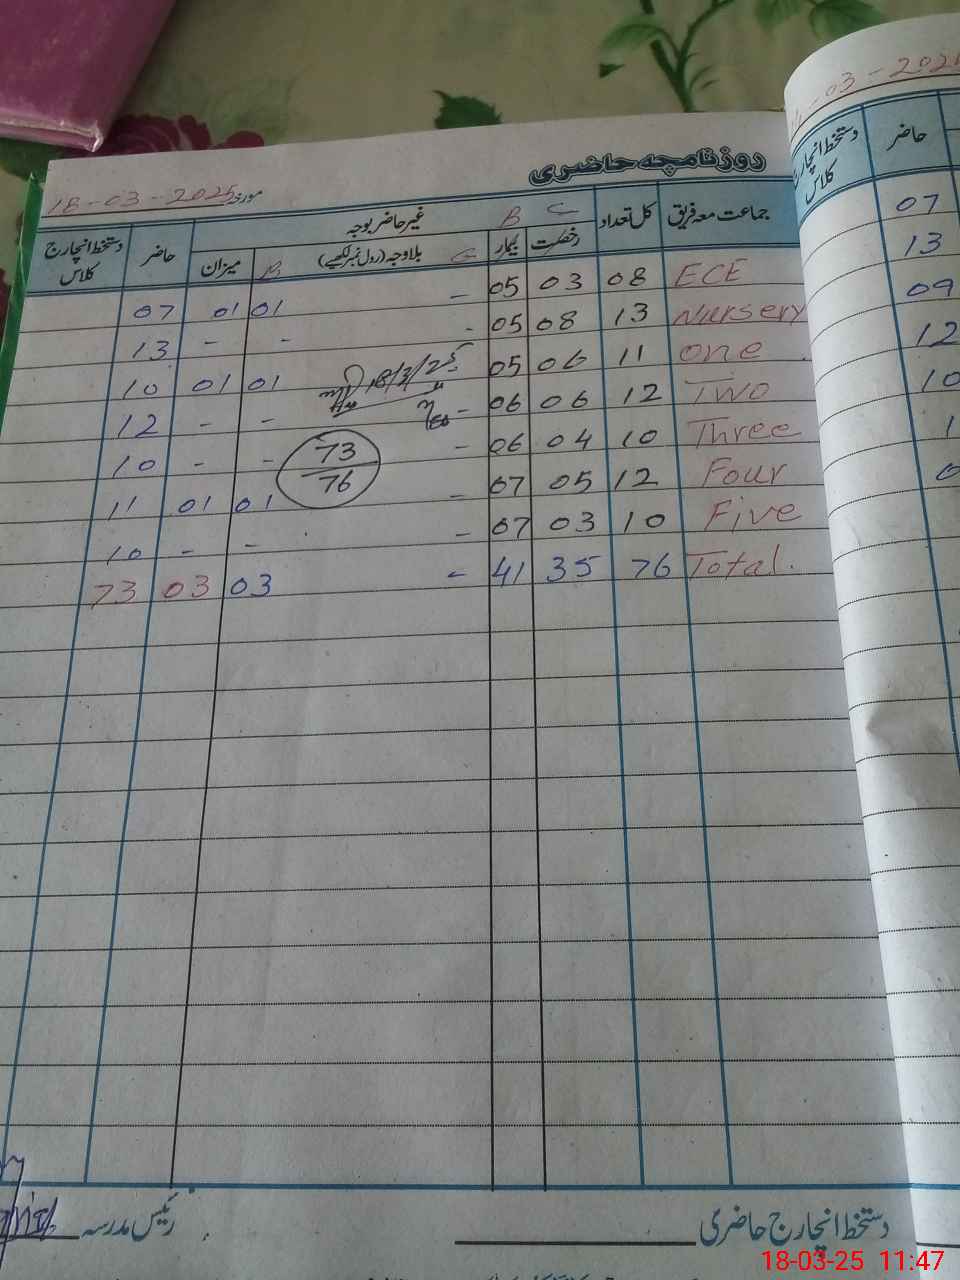 روزنامچہ حاضری
مورخہ 18-03-2025
جماعت معہ فریق کل تعداد G B غیر حاضر بوجہ حاضر دستخط انچارج کلاس
رخصت بیمار G بلاوجہ (رول نمبر لکھیے) B میزان
ECE 08 03 05 - 01 01 07
Nursery 13 08 05 - - - 13
one 11 06 05 18/3/25 01 01 10
Two 12 06 06 - - - 12
Three 10 04 06 - 73 - - 10
Four 12 05 07 - 76 01 01 11
Five 10 03 07 - - - 10
Total. 76 35 41 - 03 03 73
دستخط انچارج حاضری
رئیس مدرسہ
-03-202
حاضر دستخط انچارج کلاس
07
13
09
12
10
18-03-25 11:47